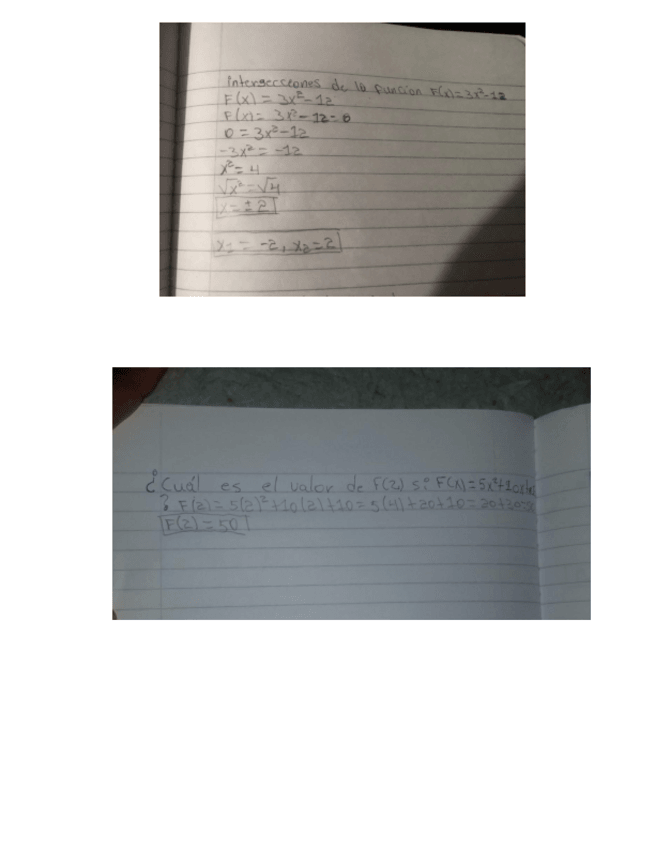 intersecciones de la función F(x)=3x²-12
F(x) = 3x²-12
F(x)= 3x²-12=0
0 = 3x²-12
-3x² = -12
x² = 4
√x² = √4
x = ± 2
x₁ = -2, x₂ = 2
¿Cuál es el valor de F(2) si F(x)=5x²+10x+10
? F(2) = 5(2)²+10(2)+10 = 5(4)+20+10 = 20+20+10
F(2) = 50